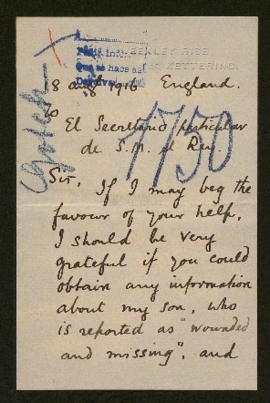 WEEKLEY RISE
KETTERING.
18 aug 1916 England.
to
El Secretario particular
de S.M. el Rey.
Gotch
1750
Sir,
If I may beg the
favour of your help,
I should be very
grateful if you could
obtain any information
about my son, who
is reported as "wounded
and missing", and